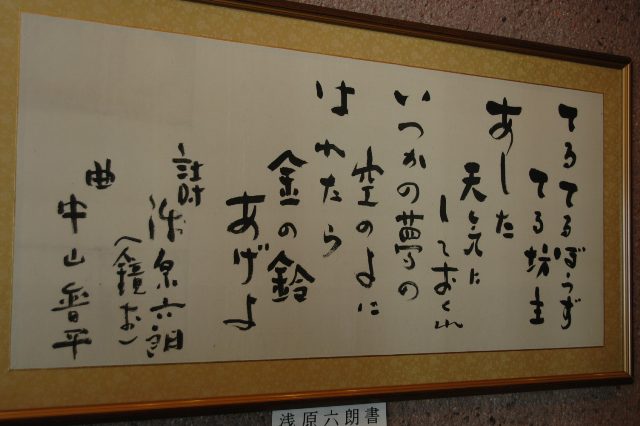 てるてるぼうず
てる坊主
あした
天気に
しておくれ
いつかの夢の
空のよに
はれたら
金の鈴
あげよ
詩
浅原六朗
(鏡村)
曲
中山晋平
浅原六朗書